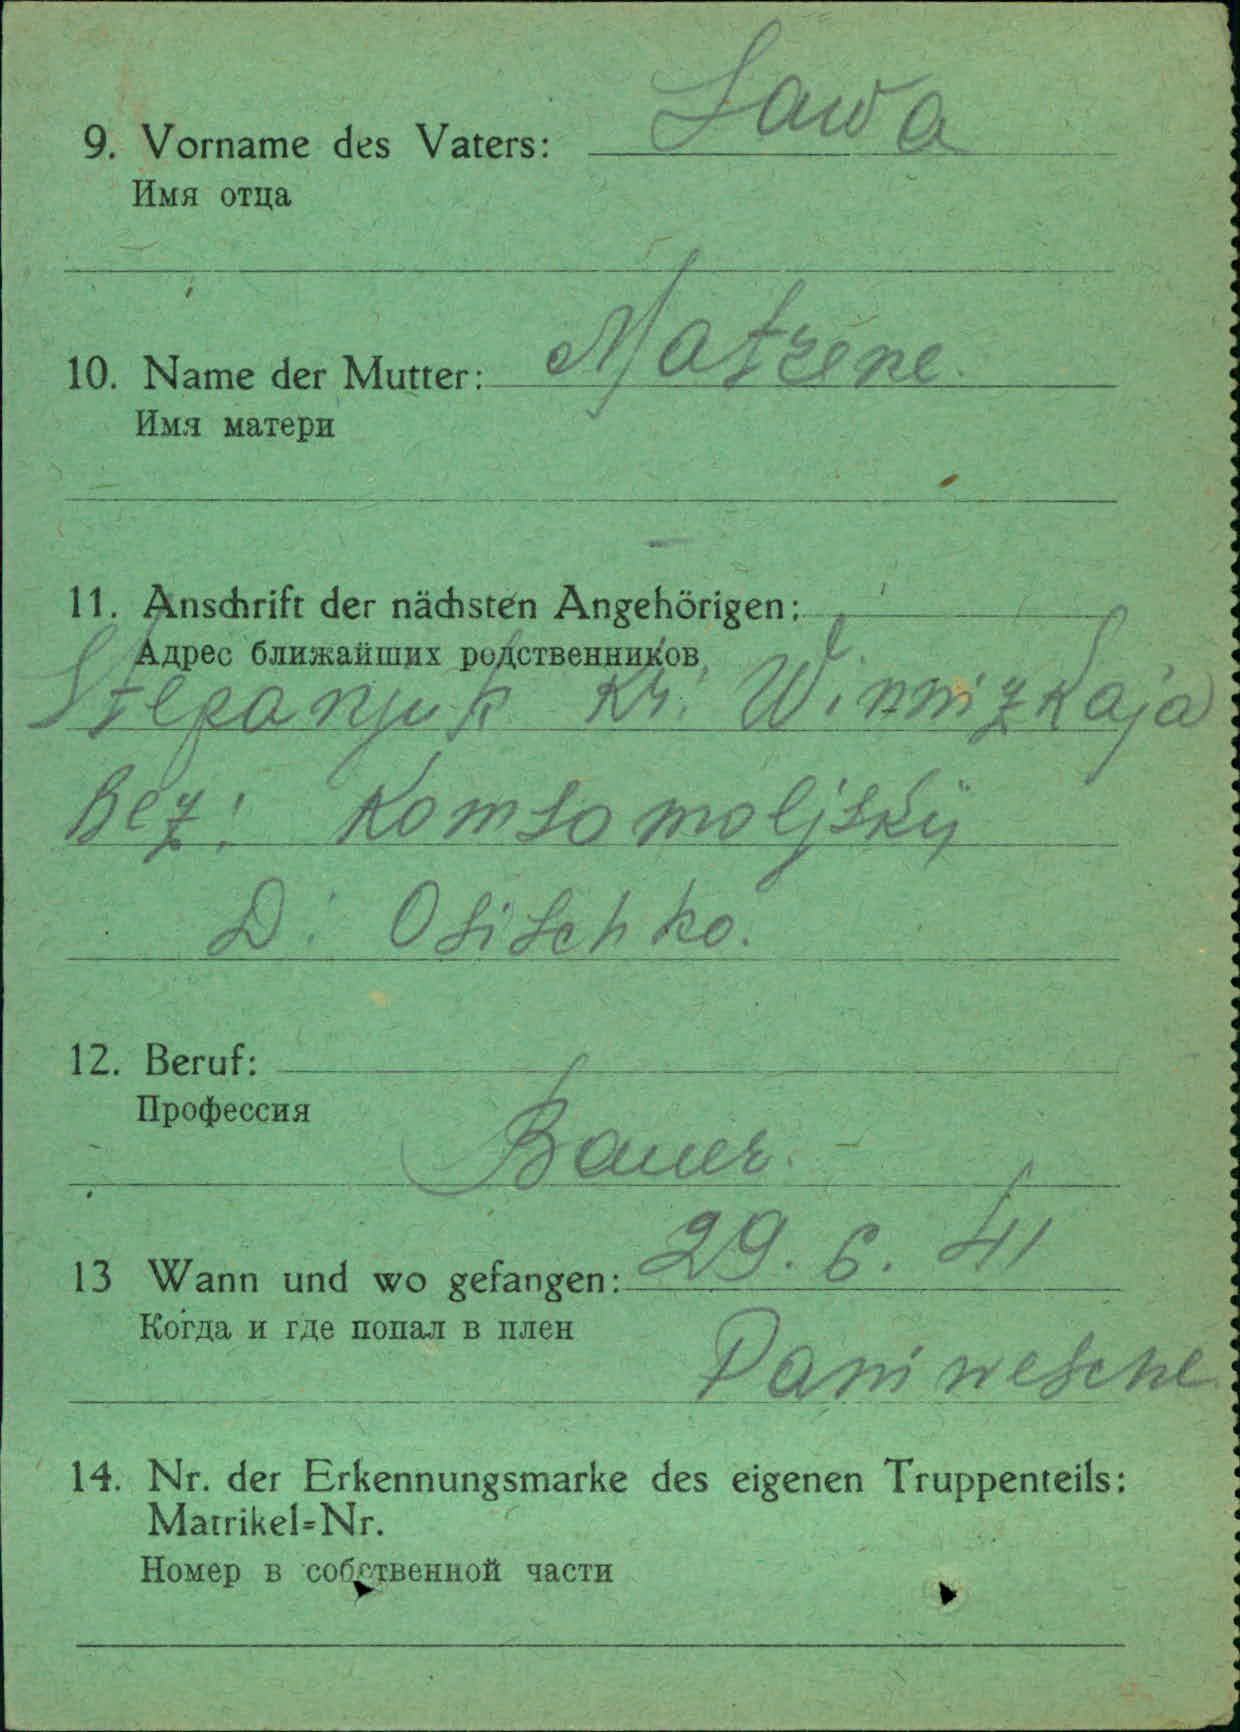 9. Vorname des Vaters: Sawa
Имя отца
10. Name der Mutter: Matrene.
Имя матери
11. Anschrift der nächsten Angehörigen:
Адрес ближайших родственников
Stepanjuk Kr: Winnizkaja
Bez: Komsomoljskij
D: Osischko.
12. Beruf:
Профессия
Bauer.
13 Wann und wo gefangen: 29. 6. 41
Когда и где попал в плен
14. Nr. der Erkennungsmarke des eigenen Truppenteils:
Matrikel=Nr.
Номер в собственной части